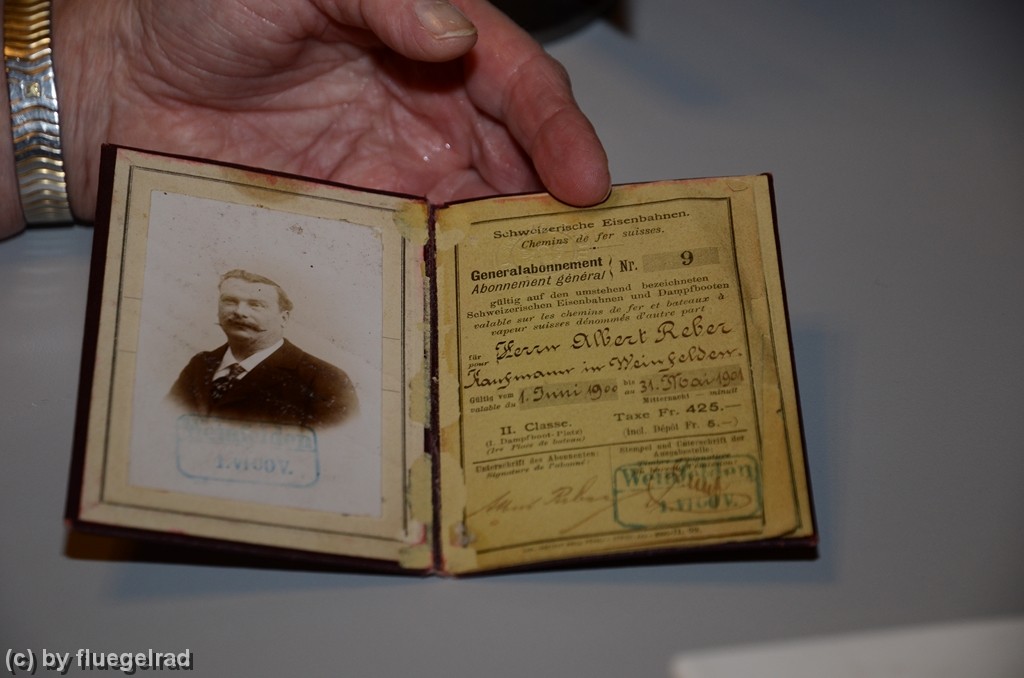 Weinfelden
1.VI00V.
Schweizerische Eisenbahnen.
Chemins de fer suisses.
Generalabonnement
Abonnement général
Nr. 9
gültig auf den umstehend bezeichneten
Schweizerischen Eisenbahnen und Dampfbooten
valable sur les chemins de fer et bateaux à
vapeur suisses dénommés d'autre part
für
pour
Herrn Albert Reber
Kaufmann in Weinfelden.
Gültig vom 1. Juni 1900 bis 31. Mai 1901
valable du au Mitternacht - minuit
II. Classe.
(I. Dampfboot-Platz)
(1re Place de bateau)
Taxe Fr. 425.—
(Incl. Dépôt Fr. 5.—)
Unterschrift des Abonnenten:
Signature de l'abonné:
Stempel und Unterschrift der
Ausgabestelle:
Albert Reber
Weinfelden
1.VI00V.
(c) by fluegelrad